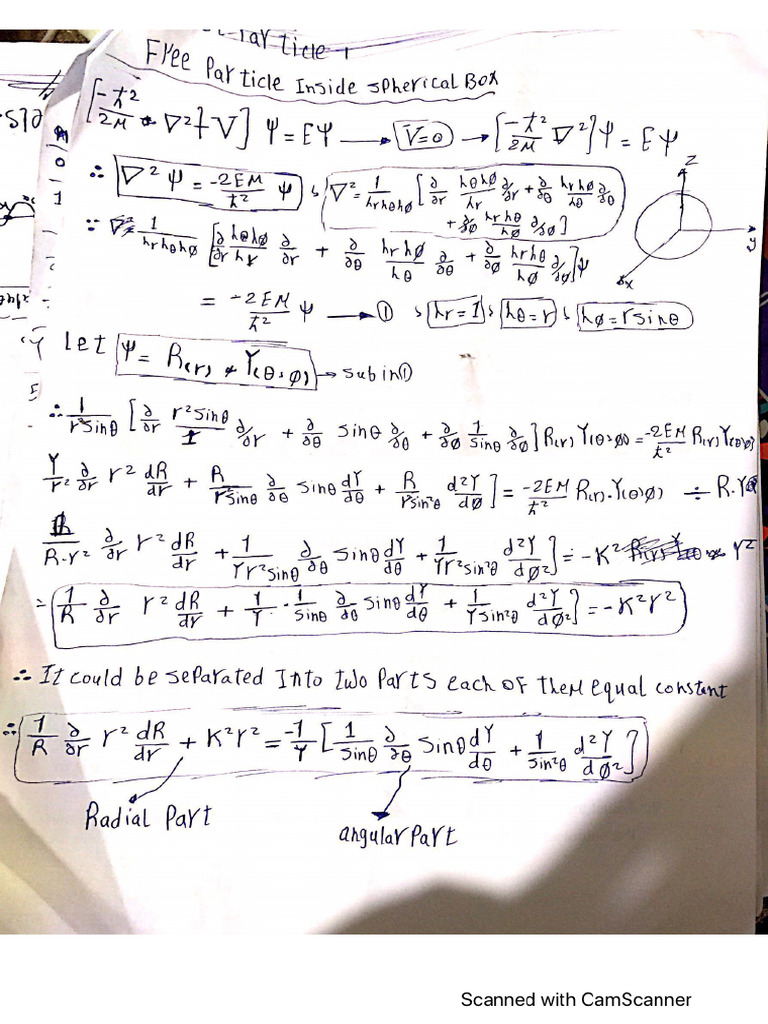 Particle
Free Particle Inside Spherical Box
[-ħ²/2M ∇² + V] Ψ = EΨ ⟶ V=0 → [-ħ²/2M ∇²]Ψ = EΨ
∴ ∇²Ψ = -2EM/ħ² Ψ , ∇² = 1/hrhθhφ [∂/∂r hθhφ/hr ∂/∂r + ∂/∂θ hrhφ/hθ ∂/∂θ
+ ∂/∂φ hrhθ/hφ ∂/∂φ]
∵ ∇² = 1/hrhθhφ [∂/∂r hθhφ/hr ∂/∂r + ∂/∂θ hrhφ/hθ ∂/∂θ + ∂/∂φ hrhθ/hφ ∂/∂φ]Ψ
= -2EM/ħ² Ψ ⟶ ① , hr=1 , hθ=r , hφ=rsinθ
z
y
x
Let Ψ = R(r) * Y(θ,φ) → sub in ①
∴ 1/r²sinθ [∂/∂r r²sinθ/1 ∂/∂r + ∂/∂θ sinθ ∂/∂θ + ∂/∂φ 1/sinθ ∂/∂φ] R(r) Y(θ,φ) = -2EM/ħ² R(r) Y(θ,φ)
Y/r² ∂/∂r r² dR/dr + R/r²sinθ ∂/∂θ sinθ dY/dθ + R/r²sin²θ d²Y/dφ] = -2EM/ħ² R(r).Y(θ,φ) ÷ R.Y
R/R.r² ∂/∂r r² dR/dr + 1/Yr²sinθ ∂/∂θ sinθ dY/dθ + 1/Yr²sin²θ d²Y/dφ²] = -K² * r²
= 1/R ∂/∂r r² dR/dr + 1/Y . 1/sinθ ∂/∂θ sinθ dY/dθ + 1/Ysin²θ d²Y/dφ²] = -K²r²
∴ It could be separated Into two Parts each of them equal constant
∴ 1/R ∂/∂r r² dR/dr + K²r² = -1/Y [1/sinθ ∂/∂θ sinθ dY/dθ + 1/sin²θ d²Y/dφ²]
Radial Part
angular Part
Scanned with CamScanner